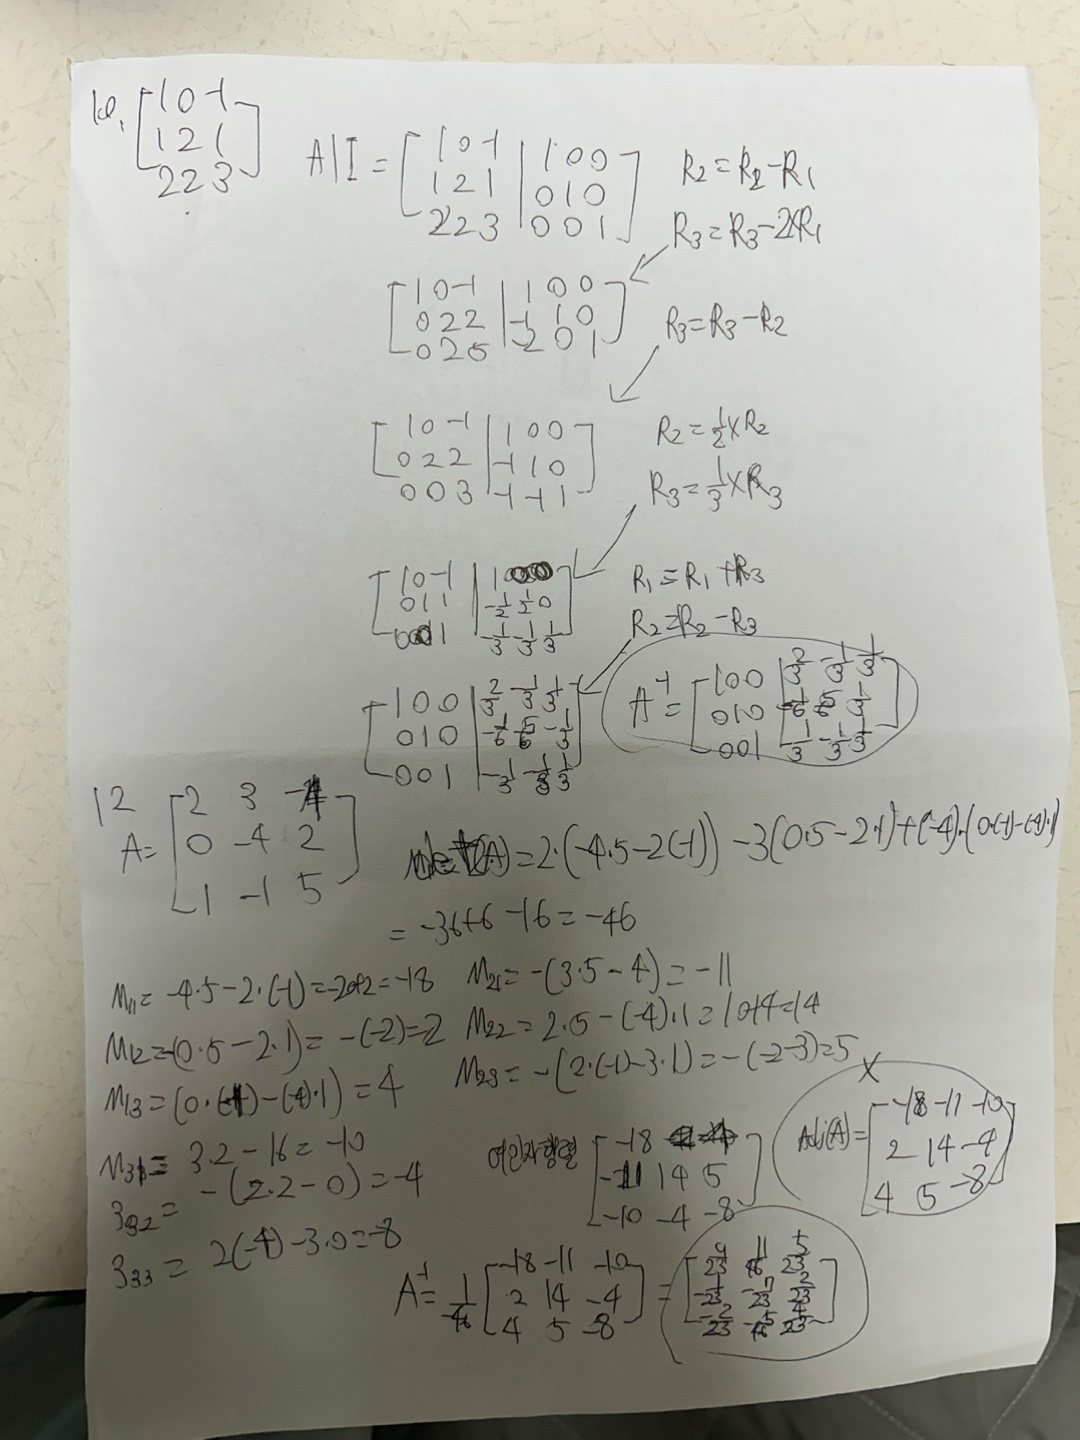 10. [1 0 -1
1 2 1
2 2 3]
A|I = [1 0 -1 | 1 0 0
1 2 1 | 0 1 0
2 2 3 | 0 0 1]
R2 = R2 - R1
R3 = R3 - 2×R1
[1 0 -1 | 1 0 0
0 2 2 | -1 1 0
0 2 5 | -2 0 1]
R3 = R3 - R2
[1 0 -1 | 1 0 0
0 2 2 | -1 1 0
0 0 3 | -1 -1 1]
R2 = 1/2 × R2
R3 = 1/3 × R3
[1 0 -1 | 1 0 0
0 1 1 | -1/2 1/2 0
0 0 1 | -1/3 -1/3 1/3]
R1 = R1 + R3
R2 = R2 - R3
[1 0 0 | 2/3 -1/3 1/3
0 1 0 | -1/6 5/6 -1/3
0 0 1 | -1/3 -1/3 1/3]
A^-1 = [1 0 0 | 2/3 -1/3 1/3
0 1 0
0 0 1 | 1/3 -1/3 1/3]
12
A = [2 3 -4
0 -4 2
1 -1 5]
det(A) = 2·(-4·5-2(-1)) -3(0·5-2·1)+(-4)·(0·(-1)-(-4)·1)
= -36+6-16 = -46
M11 = -4·5-2·(-1) = -20+2 = -18
M12 = -(0·5-2·1) = -(-2) = 2
M13 = (0·(-1)-(-4)·1) = 4
M21 = -(3·5-4) = -11
M22 = 2·5-(-4)·1 = 10+4 = 14
M23 = -(2·(-1)-3·1) = -(-2-3) = 5
M31 = 3·2-16 = -10
332 = -(2·2-0) = -4
333 = 2(-4)-3·0 = -8
여인자행렬 [-18
-11 14 5
-10 -4 -8]
×
Adj(A) = [-18 -11 -10
2 14 -4
4 5 -8]
A^-1 = 1/-46 [-18 -11 -10
2 14 -4
4 5 -8]
= [9/23 11/46 5/23
-1/23 -7/23 2/23
-2/23 -5/46 4/23]